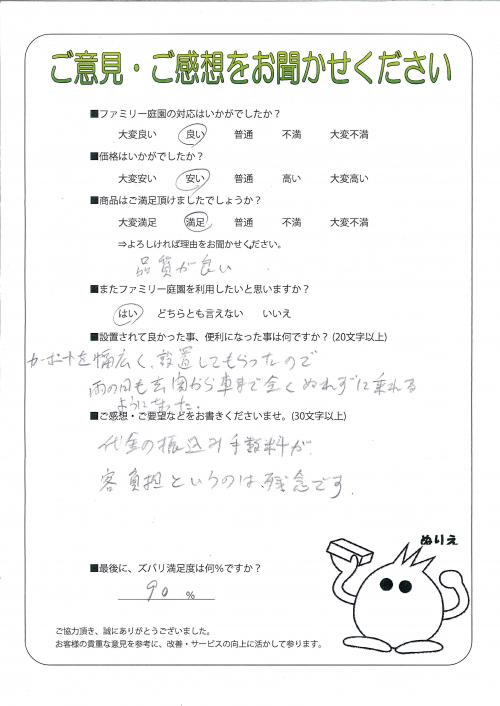 ご意見・ご感想をお聞かせください
■ファミリー庭園の対応はいかがでしたか？
大変良い 良い 普通 不満 大変不満
■価格はいかがでしたか？
大変安い 安い 普通 高い 大変高い
■商品はご満足頂けましたでしょうか？
大変満足 満足 普通 不満 大変不満
⇒よろしければ理由をお聞かせください。
品質が良い
■またファミリー庭園を利用したいと思いますか？
はい どちらとも言えない いいえ
■設置されて良かった事、便利になった事は何ですか？(20文字以上)
カーポートを幅広く、設置してもらったので
雨の日も玄関から車まで全くぬれずに乗れる
ようになった。
■ご感想・ご要望などをお書きくださいませ。(30文字以上)
代金の振込み手数料が
客負担というのは、残念です。
ぬりえ
■最後に、ズバリ満足度は何％ですか？
90 ％
ご協力頂き、誠にありがとうございました。
お客様の貴重な意見を参考に、改善・サービスの向上に活かして参ります。